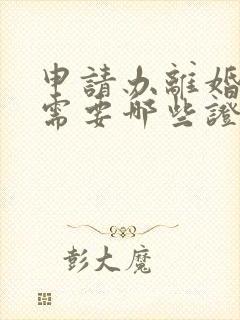 申請办離婚
需要哪些證
彭大魔